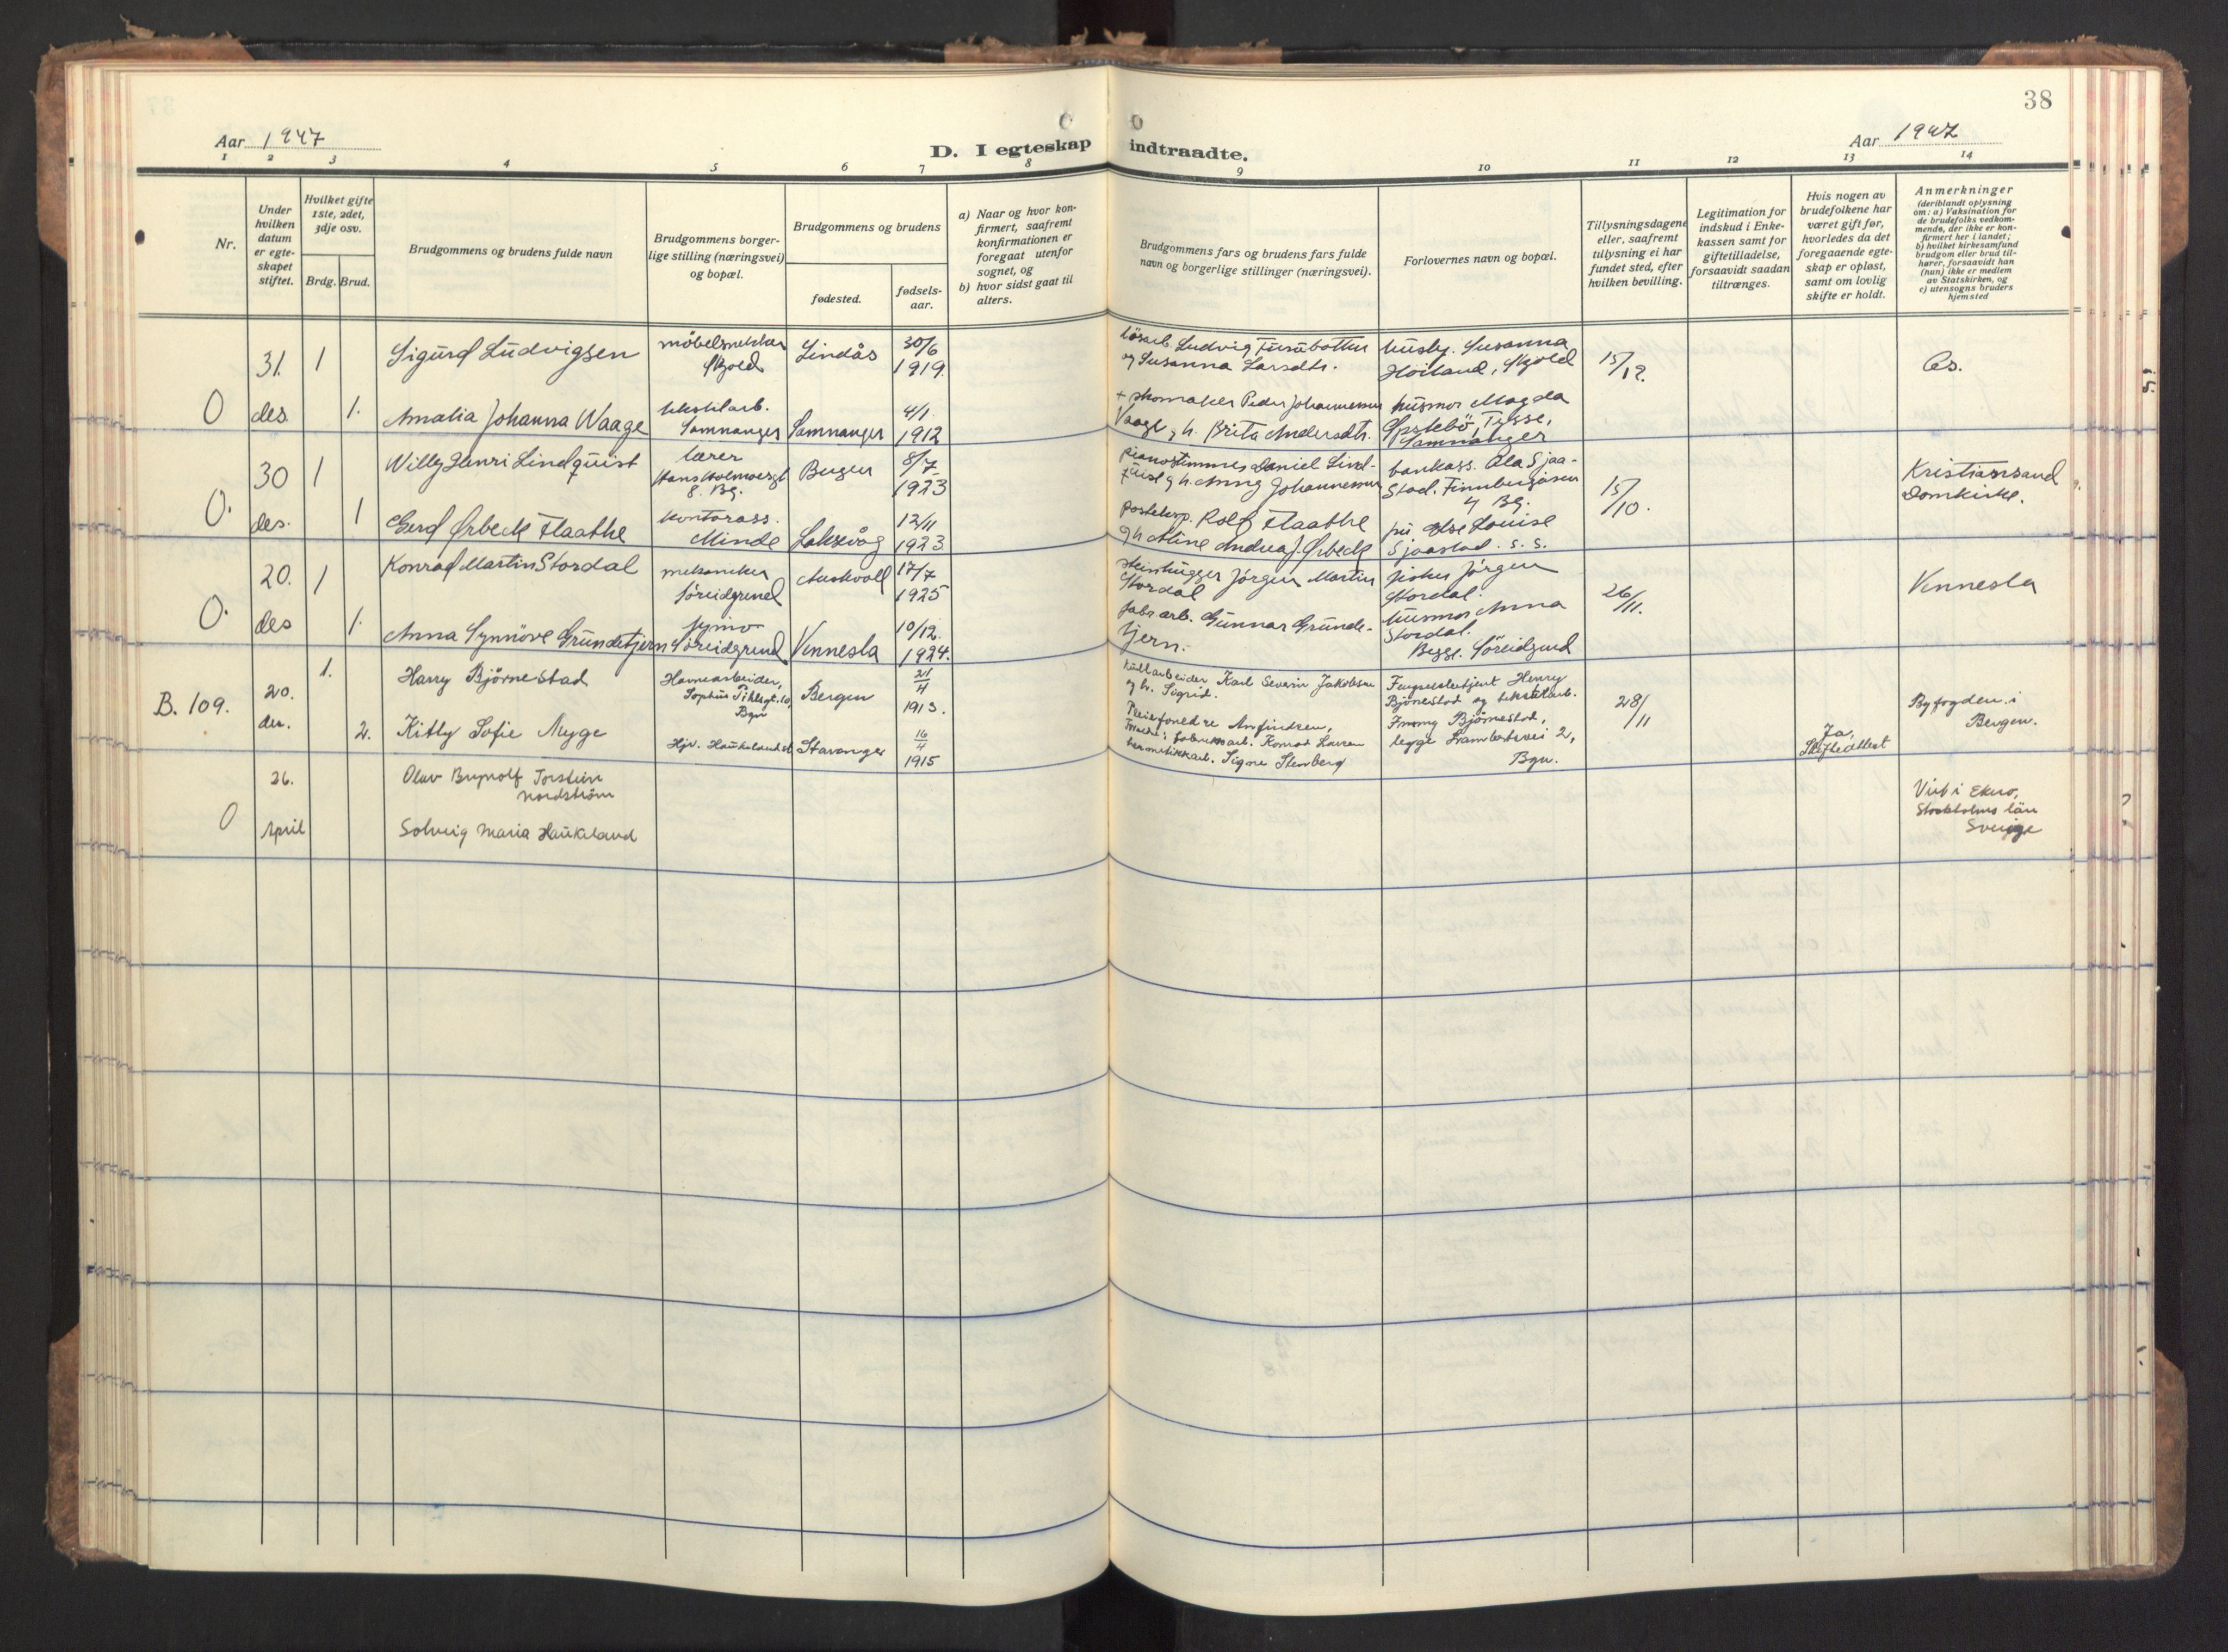 38
Aar 1947
D. I egteskap indtraadte.
Aar 1947
1 2 3 4 5 6 7 8 9 10 11 12 13 14
Nr.
Under hvilken datum er egte-skapet stiftet.
Hvilket gifte 1ste, 2det, 3dje osv.
Brdg. Brud.
Brudgommens og brudens fulde navn
Brudgommens borger-lige stilling (næringsvei) og bopæl.
Brudgommens og brudens
fødested.
fødsels-aar.
a) Naar og hvor kon-firmert, saafremt konfirmationen er foregaat utenfor sognet, og
b) hvor sidst gaat til alters.
Brudgommens fars og brudens fars fulde navn og borgerlige stillinger (næringsvei).
Forlovernes navn og bopæl.
Tillysningsdagene eller, saafremt tillysning ei har fundet sted, efter hvilken bevilling.
Legitimation for indskud i Enke-kassen samt for giftetilladelse, forsaavidt saadan tiltrænges.
Hvis nogen av brudefolkene har været gift før, hvorledes da det foregaaende egte-skap er opløst, samt om lovlig skifte er holdt.
Anmerkninger (deriblandt oplysning om: a) Vaksination for de brudefolks vedkom-mende, der ikke er kon-firmert her i landet; b) hvilket kirkesamfund brudgom eller brud til-hører, forsaavidt han (hun) ikke er medlem av Statskirken, og c) utensogns bruders hjemsted
31. 1 Sigurd Ludvigsen
Skjold
Lindås
30/6
1919.
Ludvig
og Susanna Larsdtr.
husby. Susanna
Höiland, Skjold
15/12.
0 des. 1. Amalia Johanna Waage
tekstilarb.
Samnanger
Samnanger
4/1.
1912
+ skomaker Peder Johannessen
Vaage g. h. Brita Andersdtr.
husmor Magda
Tysse,
Samnanger
30 1 Willy Henri Lindquist
lærer
8. Bg.
Bergen
8/7
1923
pianostemmer Daniel Lind-
quist g h. Anny Johannessen
bankass. Ola Sjaa-
stad. Finnbergåsen
4 Bg.
15/10.
Kristiansand
Domkirke.
0. des. 1 Gerd Ørbeck Flaathe
kontorass.
Minde
Laksevåg
12/11
1923
posteksp. Rolf Flaathe
g h Aline Andrea J. Ørbeck
fru Else Louise
Sjaastad. s. s.
20. 1 Konrad Martin Stordal
mekaniker
Söreidgrend
Askvoll
17/7
1925
steinhugger Jörgen Martin
Stordal
fisker Jörgen
Stordal.
26/11.
Vennesla
0. des 1. Anna Synnöve Grundetjern
Söreidgrend
Vennesla
10/12.
1924.
fabr arb. Gunnar Grunde-
tjern.
husmor Anna
Stordal.
Begge. Söreidgrend
B. 109.
20. 1. Harry Björnestad
Havnearbeider,
Sophus Pihlsgt. 10,
Bgn
Bergen
21/4
1913.
Kullarbeider Karl Severin Jakobsen
og h. Sigrid.
Fengselsbetjent Henry
Björnestad og tekstilarb.
28/11
Byfogden i
Bergen.
des. 2. Kitty Sofie Nygge
Hjv. Haukelandsh
Stavanger
16/4
1915
Pleieforeldre Amfindsen,
fabrikkarb. Konrad Larsen
hermetikkarb. Signe Stenberg
Björnestad,
begge 2,
Bgn.
Ja,
Skifteattest
26. Olav Brynolf Torstein
Nordström
Viet i Ekerö,
Stockholms län
Sverige
0 April Solveig Maria Haukeland